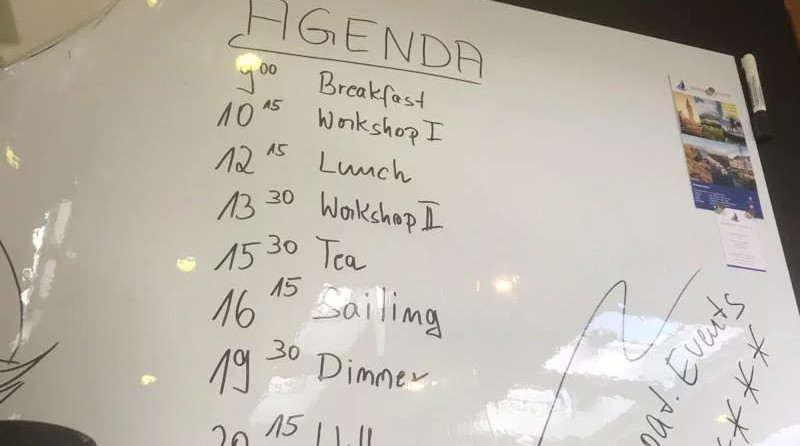 AGENDA
9 00 Breakfast
10 15 Workshop I
12 15 Lunch
13 30 Workshop II
15 30 Tea
16 15 Sailing
19 30 Dinner
20 15
Events
***